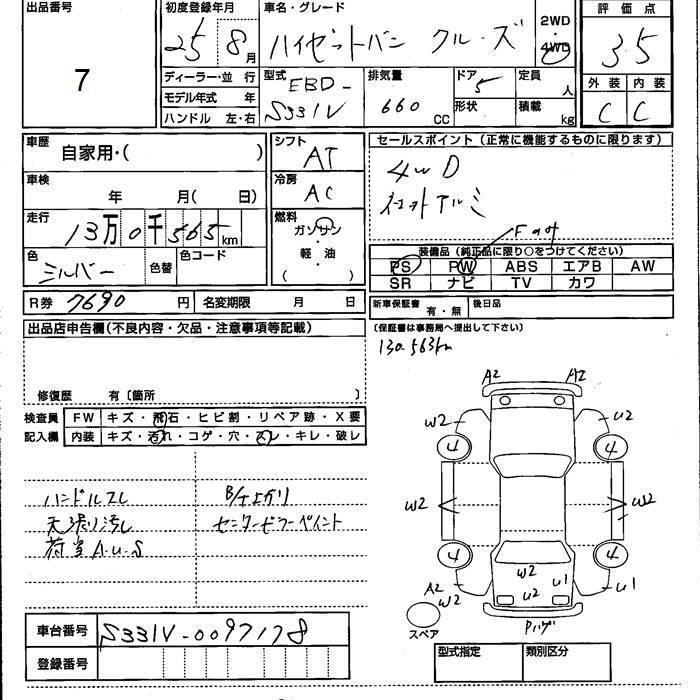 出品番号 初度登録年月 車名・グレード 2WD 評価点
7 25 8月 ハイゼットバン クルーズ 4WD 3.5
ディーラー・並行 型式 EBD- 排気量 ドア 5 定員 人 外装 内装
モデル年式 年 S331V 660 CC 形状 積載 kg C C
ハンドル 左・右
車歴 自家用・( ) シフト AT セールスポイント(正常に機能するものに限ります)
車検 年 月( 日) 冷房 AC 4WD
走行 13万0千565km 燃料 ガソリン Fのみ
色 シルバー 色替 色コード 軽・油 ( ) 装備品(純正品に限り○をつけてください)
PS PW ABS エアB AW
SR ナビ TV カワ
R券 7690 円 名変期限 月 日 新車保証書 有・無 後日品
出品店申告欄(不良内容・欠品・注意事項等記載) (保証書は事務局へ提出して下さい)
130.563km
修復歴 有〔箇所 〕
検査員 FW キズ・飛石・ヒビ割・リペア跡・X要
記入欄 内装 キズ・汚れ・コゲ・穴・スレ・キレ・破レ
A2 A2
W2 U2
4 4
ハンドルスレ
W2 W2
天張り汚し センターピラーペイント
荷室A・U・S
4 4
W2 U1
A2 W2 U2 U1
スペア
車台番号 S331V-0097178
登録番号 型式指定 類別区分